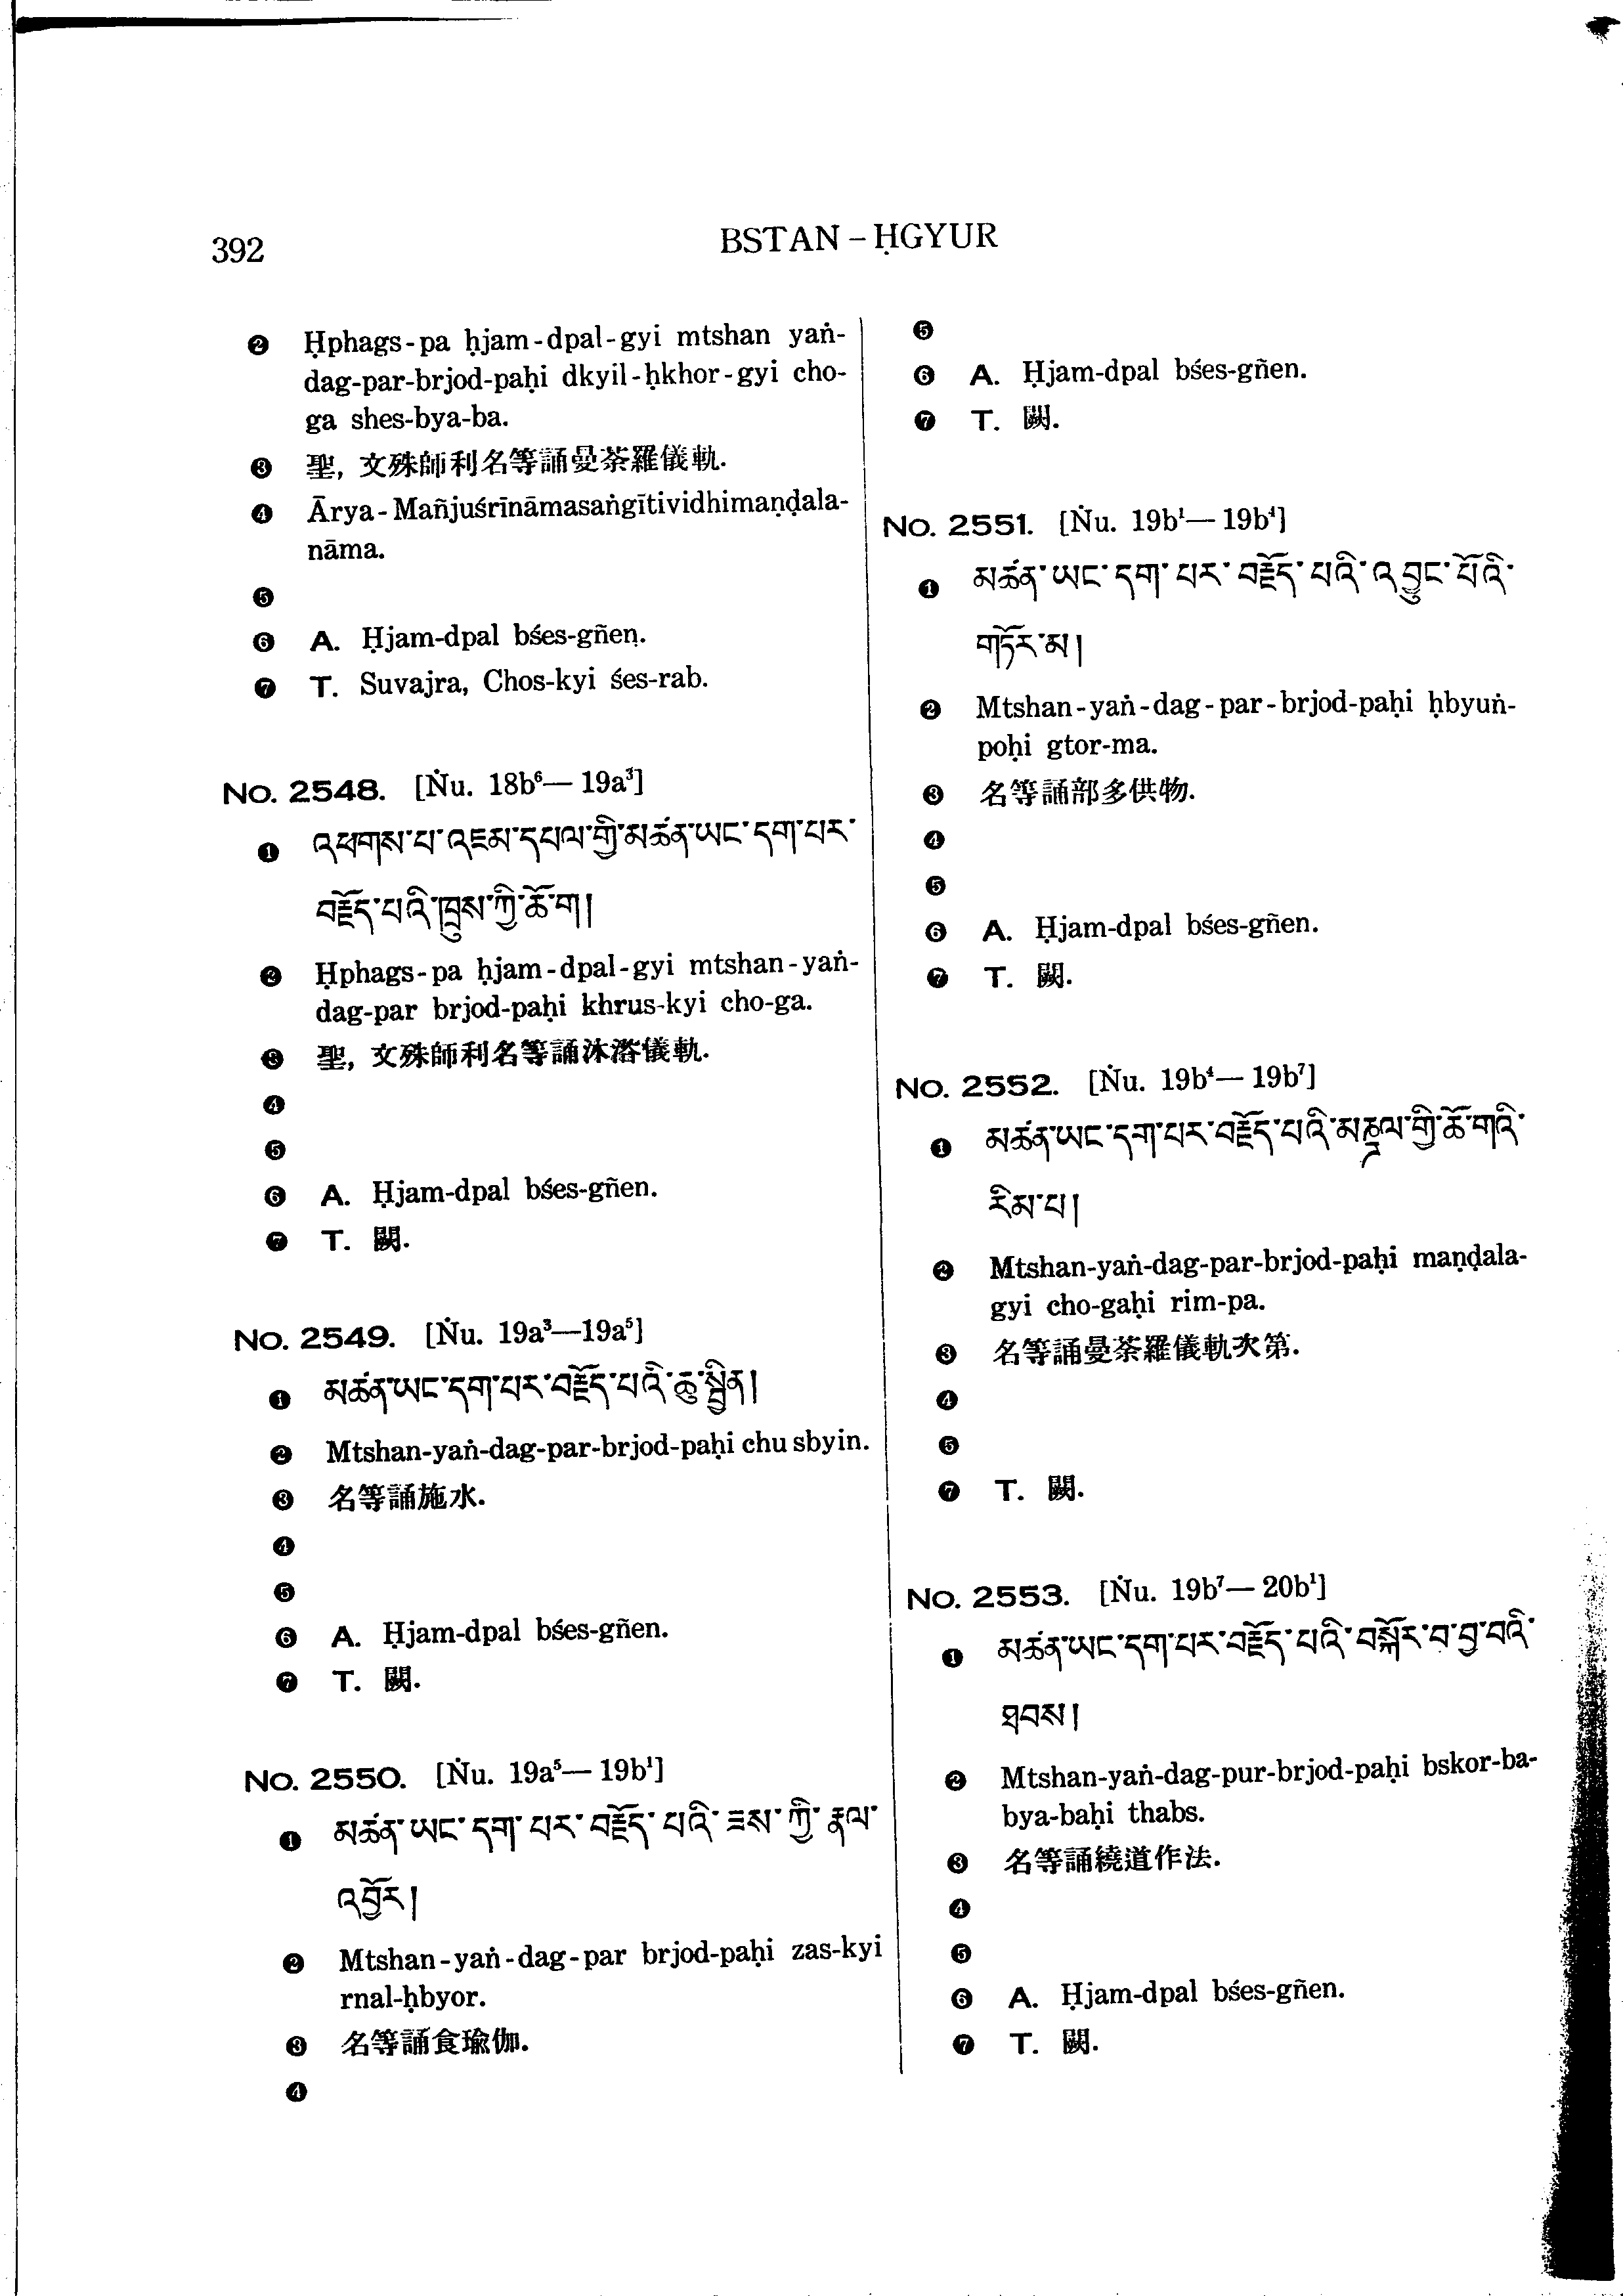 392
BSTAN – ḤGYUR
❷ Ḥphags-pa ḥjam-dpal-gyi mtshan yaṅ-
dag-par-brjod-paḥi dkyil-ḥkhor-gyi cho-
ga shes-bya-ba.
❸ 聖, 文殊師利名等誦曼荼羅儀軌.
❹ Ārya-Mañjuśrīnāmasaṅgītividhimaṇḍala-
nāma.
❺
❻ A. Ḥjam-dpal bśes-gñen.
❼ T. Suvajra, Chos-kyi śes-rab.
No. 2548. [Ṅu. 18b⁶— 19a³]
❶ འཕགས་པ་འཇམ་དཔལ་གྱི་མཚན་ཡང་དག་པར་
བརྗོད་པའི་ཁྲུས་ཀྱི་ཆོ་ག།
❷ Ḥphags-pa ḥjam-dpal-gyi mtshan-yaṅ-
dag-par brjod-paḥi khrus-kyi cho-ga.
❸ 聖, 文殊師利名等誦沐浴儀軌.
❹
❺
❻ A. Ḥjam-dpal bśes-gñen.
❼ T. 闕.
No. 2549. [Ṅu. 19a³—19a⁵]
❶ མཚན་ཡང་དག་པར་བརྗོད་པའི་ཆུ་སྦྱིན།
❷ Mtshan-yaṅ-dag-par-brjod-paḥi chu sbyin.
❸ 名等誦施水.
❹
❺
❻ A. Ḥjam-dpal bśes-gñen.
❼ T. 闕.
No. 2550. [Ṅu. 19a⁵— 19b¹]
❶ མཚན་ཡང་དག་པར་བརྗོད་པའི་ཟས་ཀྱི་རྣལ་
འབྱོར།
❷ Mtshan-yaṅ-dag-par brjod-paḥi zas-kyi
rnal-ḥbyor.
❸ 名等誦食瑜伽.
❹
❺
❻ A. Ḥjam-dpal bśes-gñen.
❼ T. 闕.
No. 2551. [Ṅu. 19b¹— 19b⁴]
❶ མཚན་ཡང་དག་པར་བརྗོད་པའི་འབྱུང་པོའི་
གཏོར་མ།
❷ Mtshan-yaṅ-dag-par-brjod-paḥi ḥbyuṅ-
poḥi gtor-ma.
❸ 名等誦部多供物.
❹
❺
❻ A. Ḥjam-dpal bśes-gñen.
❼ T. 闕.
No. 2552. [Ṅu. 19b⁴— 19b⁷]
❶ མཚན་ཡང་དག་པར་བརྗོད་པའི་མཎྜལ་གྱི་ཆོ་གའི་
རིམ་པ།
❷ Mtshan-yaṅ-dag-par-brjod-paḥi maṇḍala-
gyi cho-gaḥi rim-pa.
❸ 名等誦曼荼羅儀軌次第.
❹
❺
❼ T. 闕.
No. 2553. [Ṅu. 19b⁷— 20b¹]
❶ མཚན་ཡང་དག་པར་བརྗོད་པའི་བསྐོར་བ་བྱ་བའི་
ཐབས།
❷ Mtshan-yaṅ-dag-pur-brjod-paḥi bskor-ba-
bya-baḥi thabs.
❸ 名等誦繞道作法.
❹
❺
❻ A. Ḥjam-dpal bśes-gñen.
❼ T. 闕.